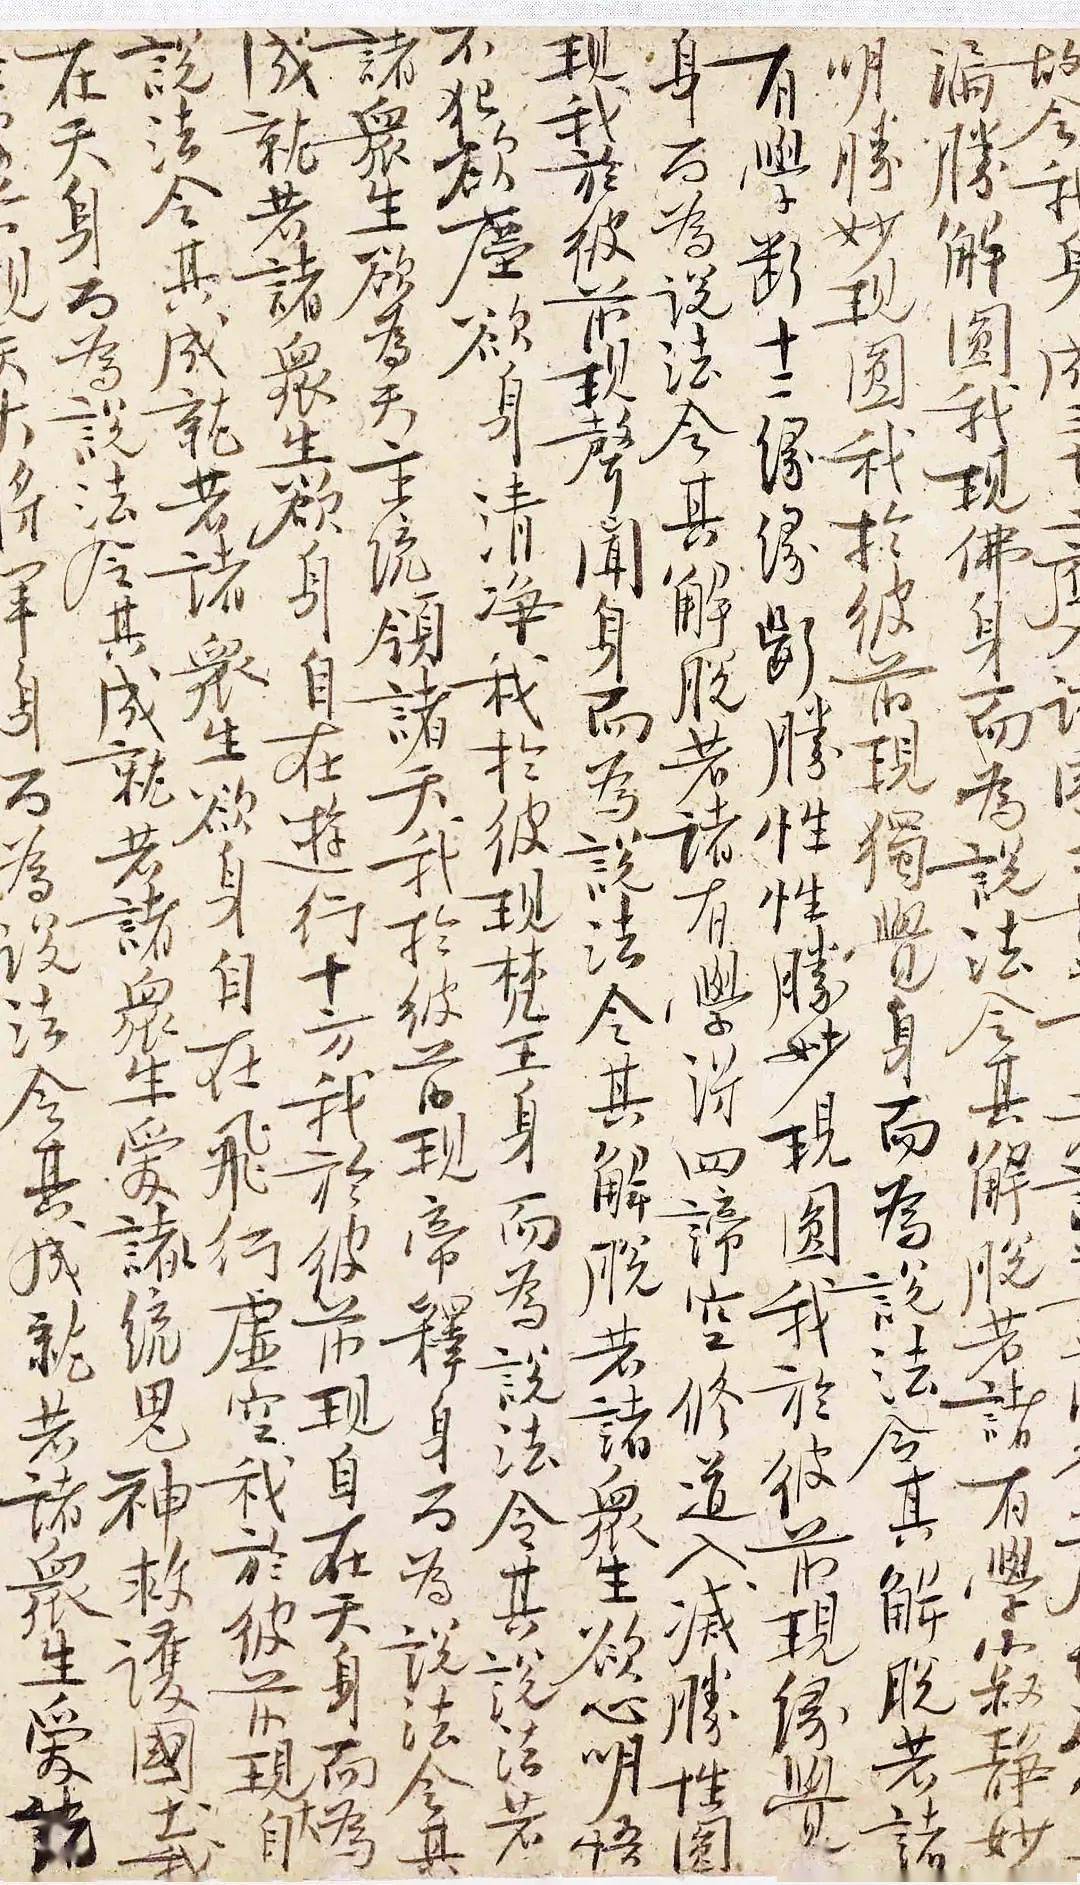 故令我身成三十二應入諸國
漏勝解圓我現佛身而為說法令其解脫若諸有學寂靜妙
明勝妙現圓我於彼前現獨覺身而為說法令其解脫若諸
有學斷十二緣緣斷勝性性勝妙現圓我於彼前現緣覺
身而為說法令其解脫若諸有學得四諦空修道入滅勝性圓
現我於彼前現聲聞身而為說法令其解脫若諸眾生欲心明悟
不犯欲塵欲身清淨我於彼現梵王身而為說法令其說法若
諸眾生欲為天主統領諸天我於彼前現帝釋身而為說法令其
成就若諸眾生欲身自在遊行十方我於彼前現自在天身而為
說法令其成就若諸眾生欲身自在飛行虛空我於彼前現大自
在天身而為說法令其成就若諸眾生愛諸統鬼神救護國土我
現天大將軍身而為說法令其成就若諸眾生愛統